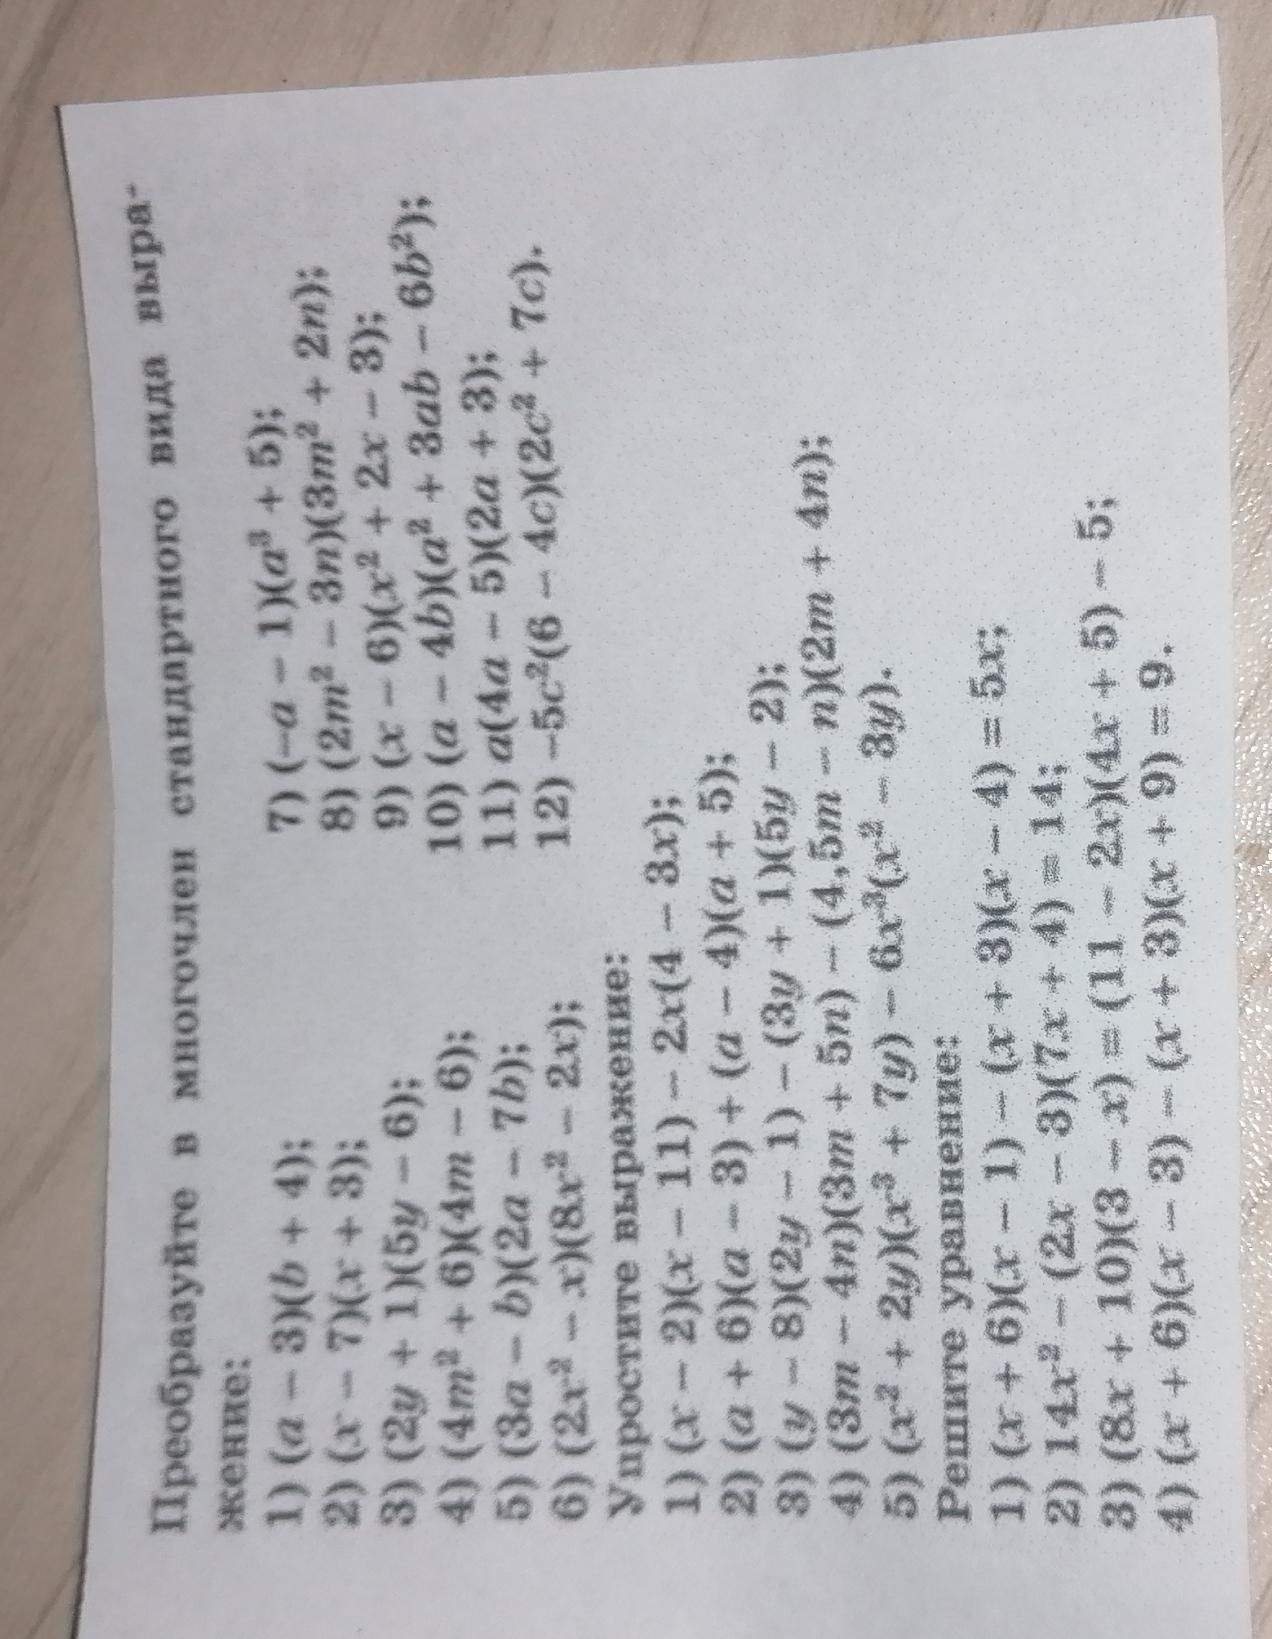 Преобразуйте в многочлен стандартного вида выра-
жение:
1) (a − 3)(b + 4);
2) (x − 7)(x + 3);
3) (2y + 1)(5y − 6);
4) (4m² + 6)(4m − 6);
5) (3a − b)(2a − 7b);
6) (2x² − x)(8x² − 2x);
7) (−a − 1)(a³ + 5);
8) (2m² − 3n)(3m² + 2n);
9) (x − 6)(x² + 2x − 3);
10) (a − 4b)(a² + 3ab − 6b²);
11) a(4a − 5)(2a + 3);
12) −5c²(6 − 4c)(2c² + 7c).
Упростите выражение:
1) (x − 2)(x − 11) − 2x(4 − 3x);
2) (a + 6)(a − 3) + (a − 4)(a + 5);
3) (y − 8)(2y − 1) − (3y + 1)(5y − 2);
4) (3m − 4n)(3m + 5n) − (4,5m − n)(2m + 4n);
5) (x² + 2y)(x³ + 7y) − 6x³(x² − 3y).
Решите уравнение:
1) (x + 6)(x − 1) − (x + 3)(x − 4) = 5x;
2) 14x² − (2x − 3)(7x + 4) = 14;
3) (8x + 10)(3 − x) = (11 − 2x)(4x + 5) − 5;
4) (x + 6)(x − 3) − (x + 3)(x + 9) = 9.